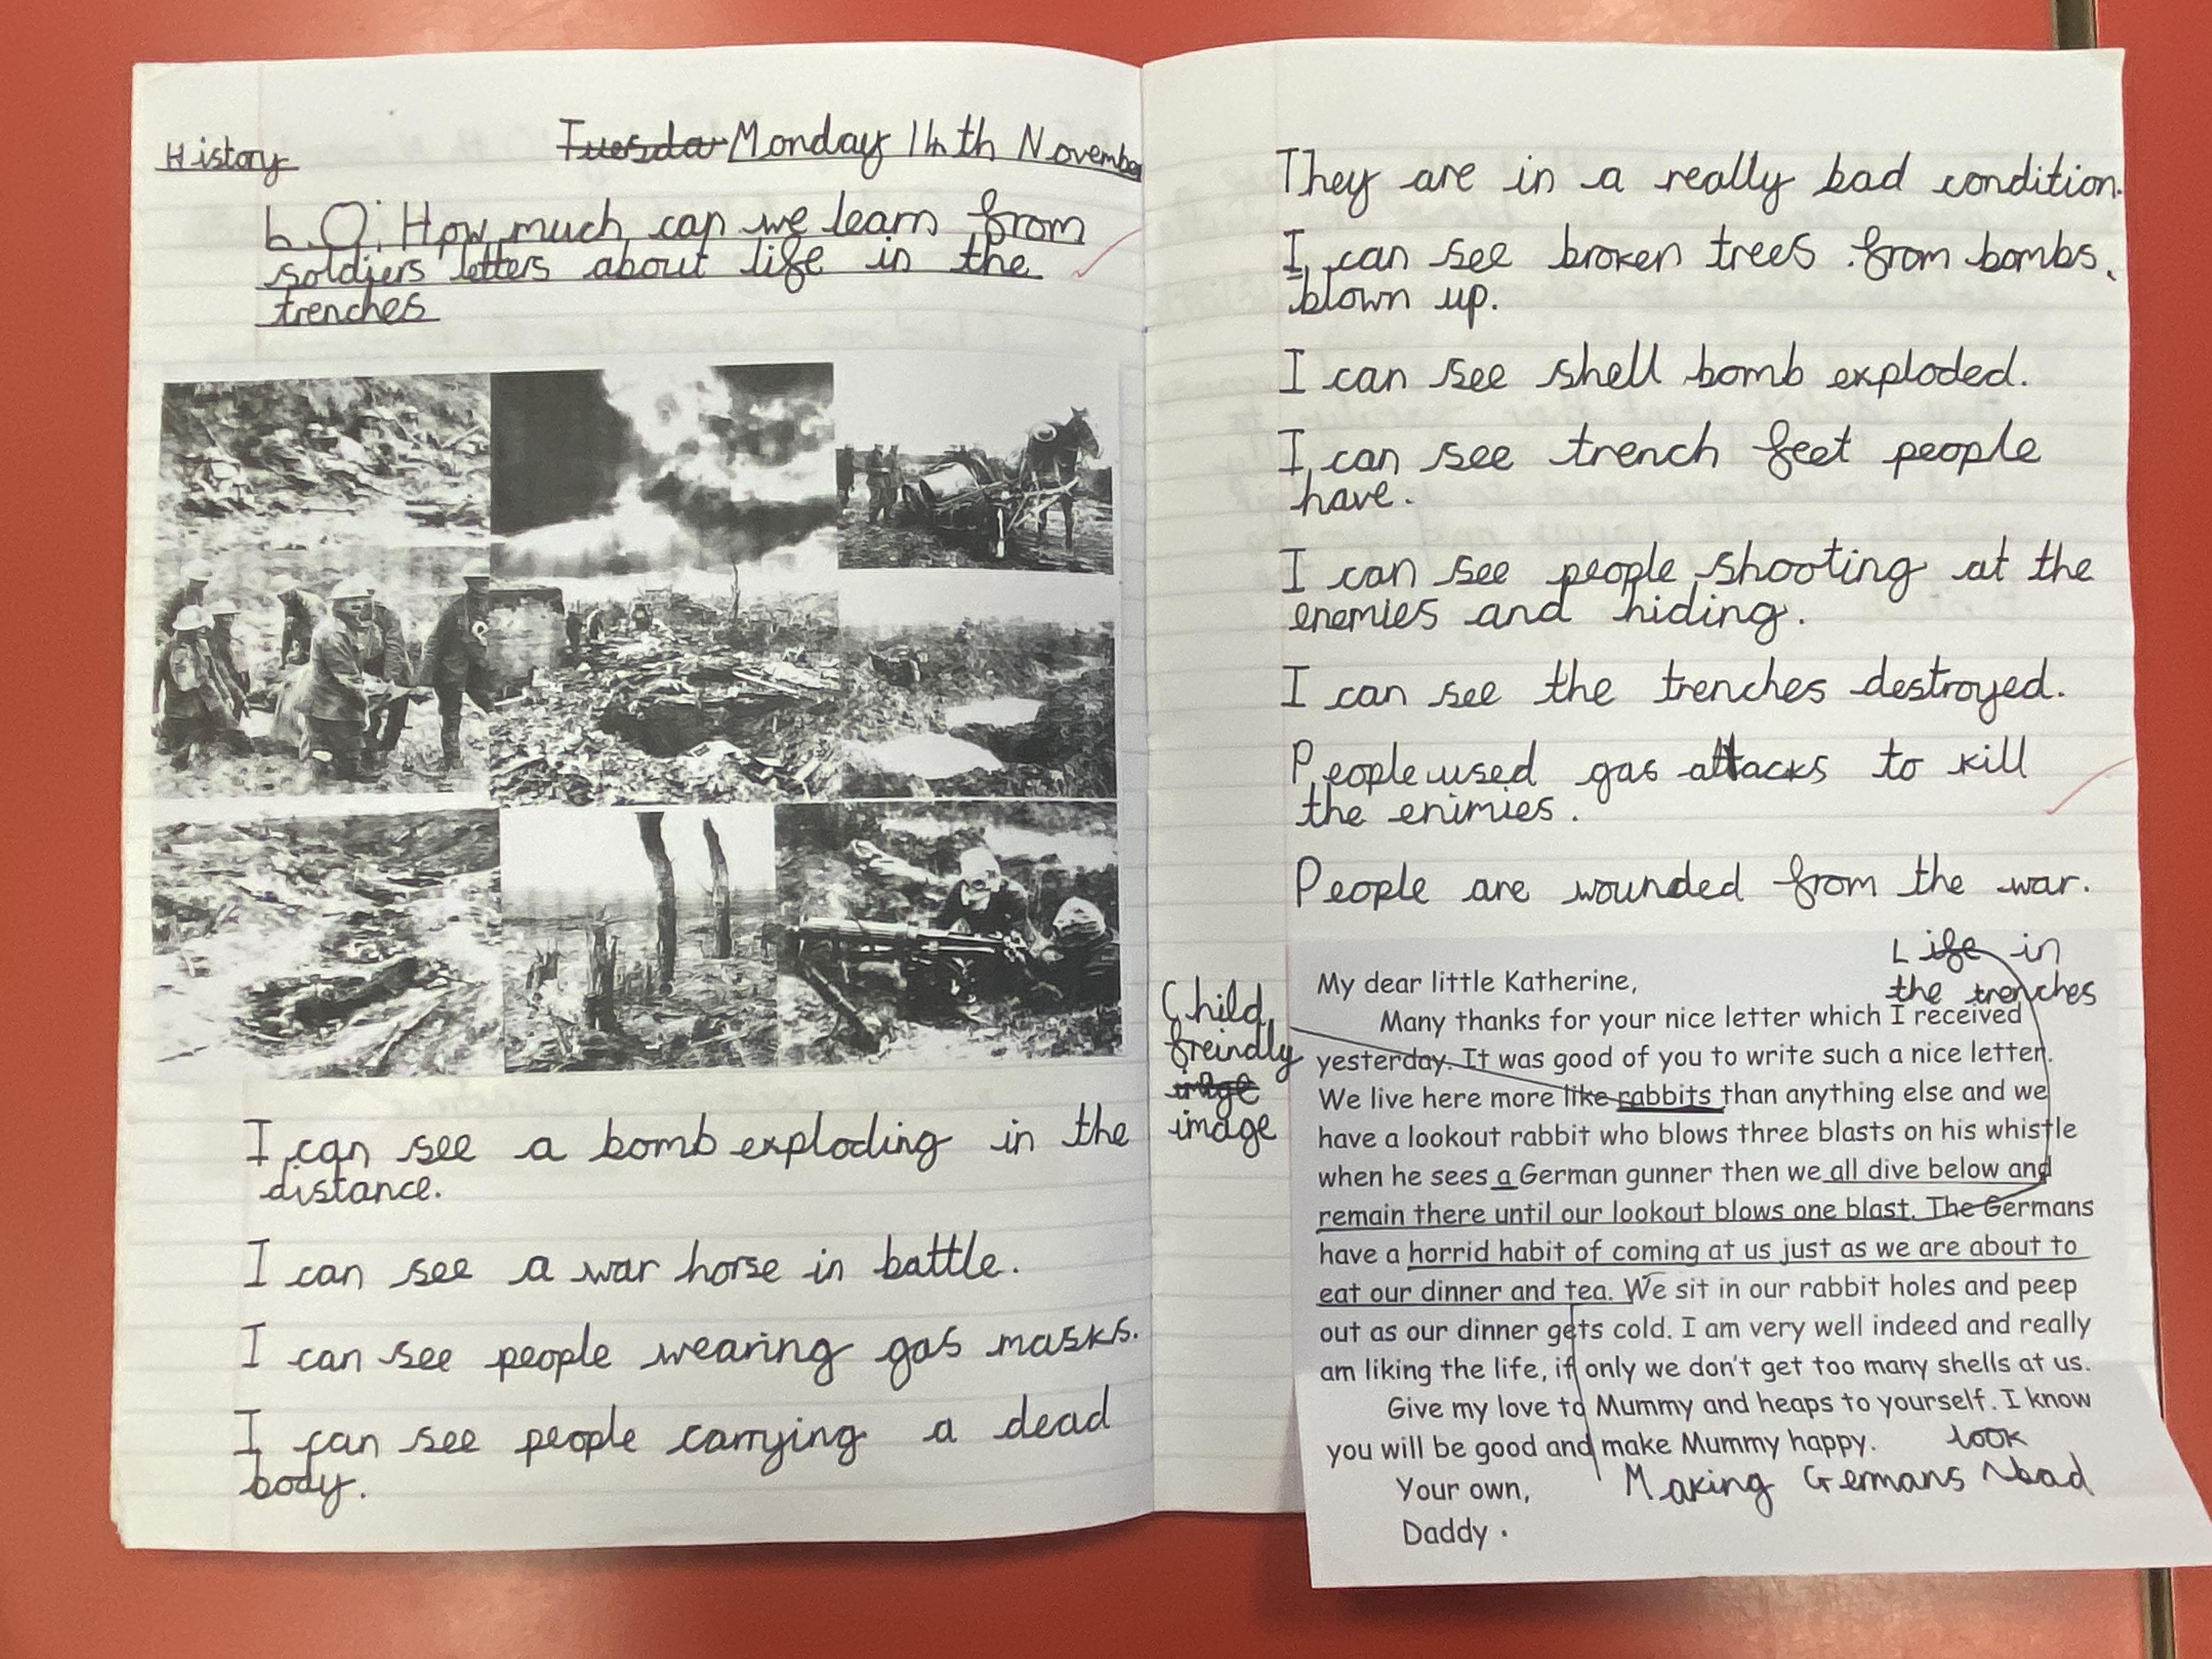 History
Tuesda Monday 14th November
L.O: How much can we learn from
soldiers letters about life in the
trenches
I can see a bomb exploding in the
distance.
I can see a war horse in battle.
I can see people wearing gas masks.
I can see people carrying a dead
body.
They are in a really bad condition.
I can see broken trees from bombs
blown up.
I can see shell bomb exploded.
I can see trench feet people
have.
I can see people shooting at the
enemies and hiding.
I can see the trenches destroyed.
People used gas attacks to kill
the enimies.
People are wounded from the war.
Life in
the trenches
Child
freindly
image
My dear little Katherine,
Many thanks for your nice letter which I received
yesterday. It was good of you to write such a nice letter.
We live here more like rabbits than anything else and we
have a lookout rabbit who blows three blasts on his whistle
when he sees a German gunner then we all dive below and
remain there until our lookout blows one blast. The Germans
have a horrid habit of coming at us just as we are about to
eat our dinner and tea. We sit in our rabbit holes and peep
out as our dinner gets cold. I am very well indeed and really
am liking the life, if only we don't get too many shells at us.
Give my love to Mummy and heaps to yourself. I know
you will be good and make Mummy happy.
Your own,
Daddy.
look
Making Germans bad